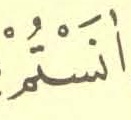 أنَسْتُمْ